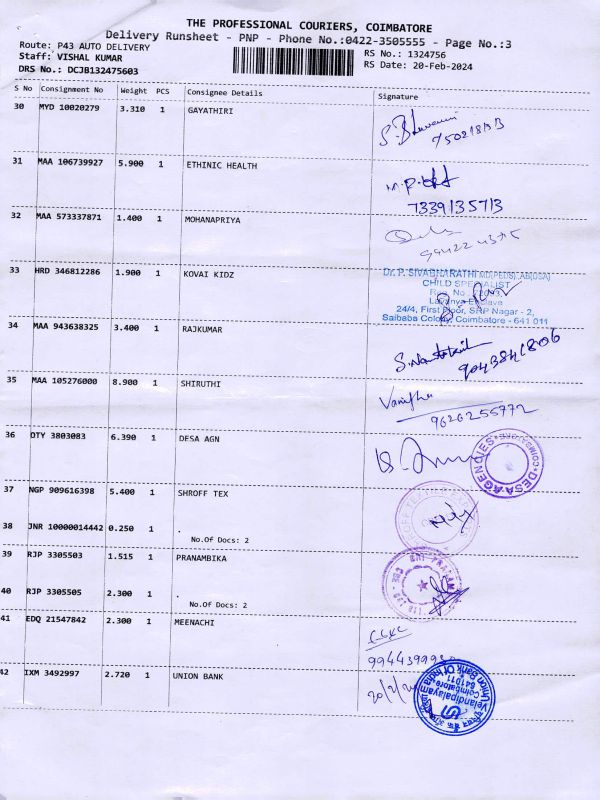 THE PROFESSIONAL COURIERS, COIMBATORE
Delivery Runsheet - PNP - Phone No.:0422-3505555 - Page No.:3
Route: P43 AUTO DELIVERY
RS No.: 1324756
Staff: VISHAL KUMAR
RS Date: 20-Feb-2024
DRS No.: DCJB132475603
S No Consignment No Weight PCS Consignee Details Signature
30 MYD 10020279 3.310 1 GAYATHIRI
31 MAA 106739927 5.900 1 ETHINIC HEALTH
7339135713
32 MAA 573337871 1.400 1 MOHANAPRIYA
33 HRD 346812286 1.900 1 KOVAI KIDZ
Dr. P. SIVABHARATHI MD(PEDS), AB(USA)
CHILD SPECIALIST
24/4, First Floor, SRP Nagar - 2,
Saibaba Colony, Coimbatore - 641 011
34 MAA 943638325 3.400 1 RAJKUMAR
9043841806
35 MAA 105276000 8.900 1 SHIRUTHI
9626255772
36 OTY 3803083 6.390 1 DESA AGN
DESA AGENCIES
COIMBATORE
37 NGP 909616398 5.400 1 SHROFF TEX
38 JNR 10000014442 0.250 1 .
No.Of Docs: 2
39 RJP 3305503 1.515 1 PRANAMBIKA
40 RJP 3305505 2.300 1 .
No.Of Docs: 2
41 EDQ 21547842 2.300 1 MEENACHI
42 IXM 3492997 2.720 1 UNION BANK
Union Bank Of India
641011
Coimbatore
Velandipalayam